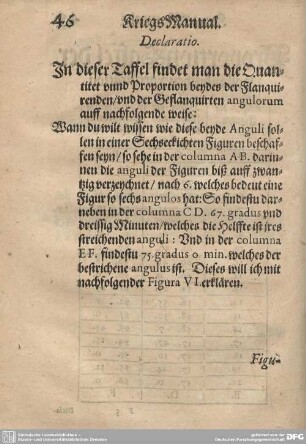 46 Kriegs Manual.
Declaratio.
In dieser Taffel findet man die Quan-
titet vnnd Proportion beydes der Flanqui-
renden/vnd der Geflanquirten angulorum
auff nachfolgende weise:
Wann du wilt wissen wie diese beyde Anguli sol-
len in einer Sechseckichten Figuren beschaf-
fen seyn/so sehe in der columna AB. darin-
nen die anguli der Figuren biß auff zwan-
tzig verzeychnet/nach 6. welches bedeut eine
Figur so sechs angulos hat: So findestu dar-
neben in der columna CD. 67. gradus vnd
dreissig Minuten/welches die Helffte ist jres
streichenden anguli: Vnd in der columna
EF. findestu 75. gradus 0. min. welches der
bestrichene angulus ist. Dieses will ich mit
nachfolgender Figura VI. erklären.
Figu-